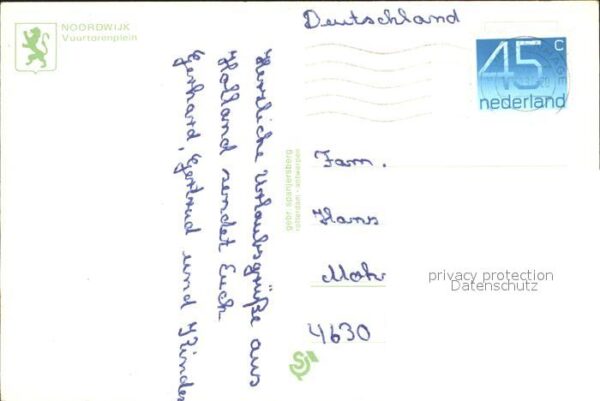 NOORDWIJK
Vuurtorenplein
Herzliche Urlaubsgrüße aus
Holland sendet Euch
Gerhard, Gertrud und Kinder
gebr. spanjersberg
rotterdam - antwerpen
Deutschland
45 c
nederland
Fam.
Hans
Mohr
4630
privacy protection
Datenschutz